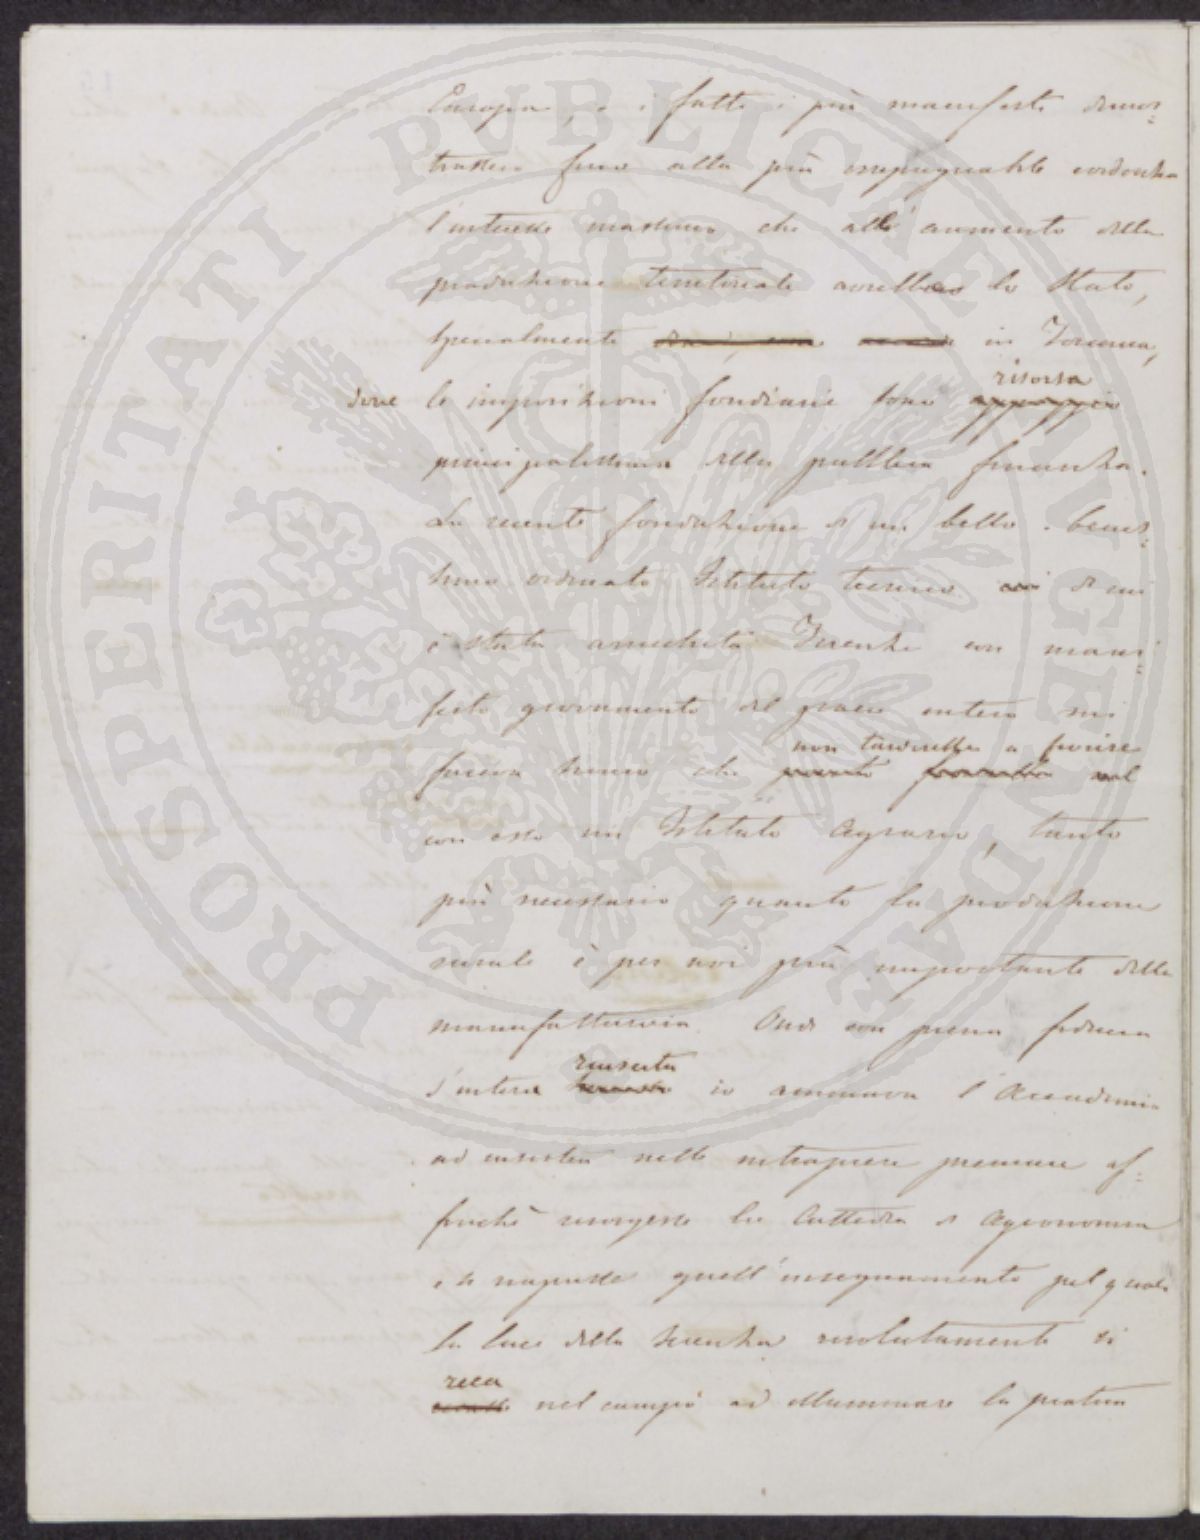 Europa, e i fatti i più manifesti dimos=
trassero fino alla più inespugnabile evidenza
l'interesse massimo che all' aumento della
produzione territoriale avrebbe lo Stato,
specialmente in Toscana,
dove le imposizioni fondiarie sono risorsa
principalissima della pubblica finanza.
La recente fondazione di un bello e benis=
simo ordinato Istituto tecnico di cui
è stata arricchita Firenze con mani=
festo giovamento del paese intero mi
faceva sicuro che non tarderebbe a fiorire
con esso un Istituto Agrario, tanto
più necessario quanto la produzione
rurale è per noi più importante della
manufatturiera. Onde con piena fiducia
d'intera riuscita io animava l'Accademia
ad insister nelle intraprese premure af=
finchè risorgesse la Cattedra di Agronomia
e si riaprisse quell'insegnamento pel quale
la luce della scienza risolutamente si
reca nel campo ad illuminare la pratica
PROSPERITATI PUBLICAE AUGENDAE